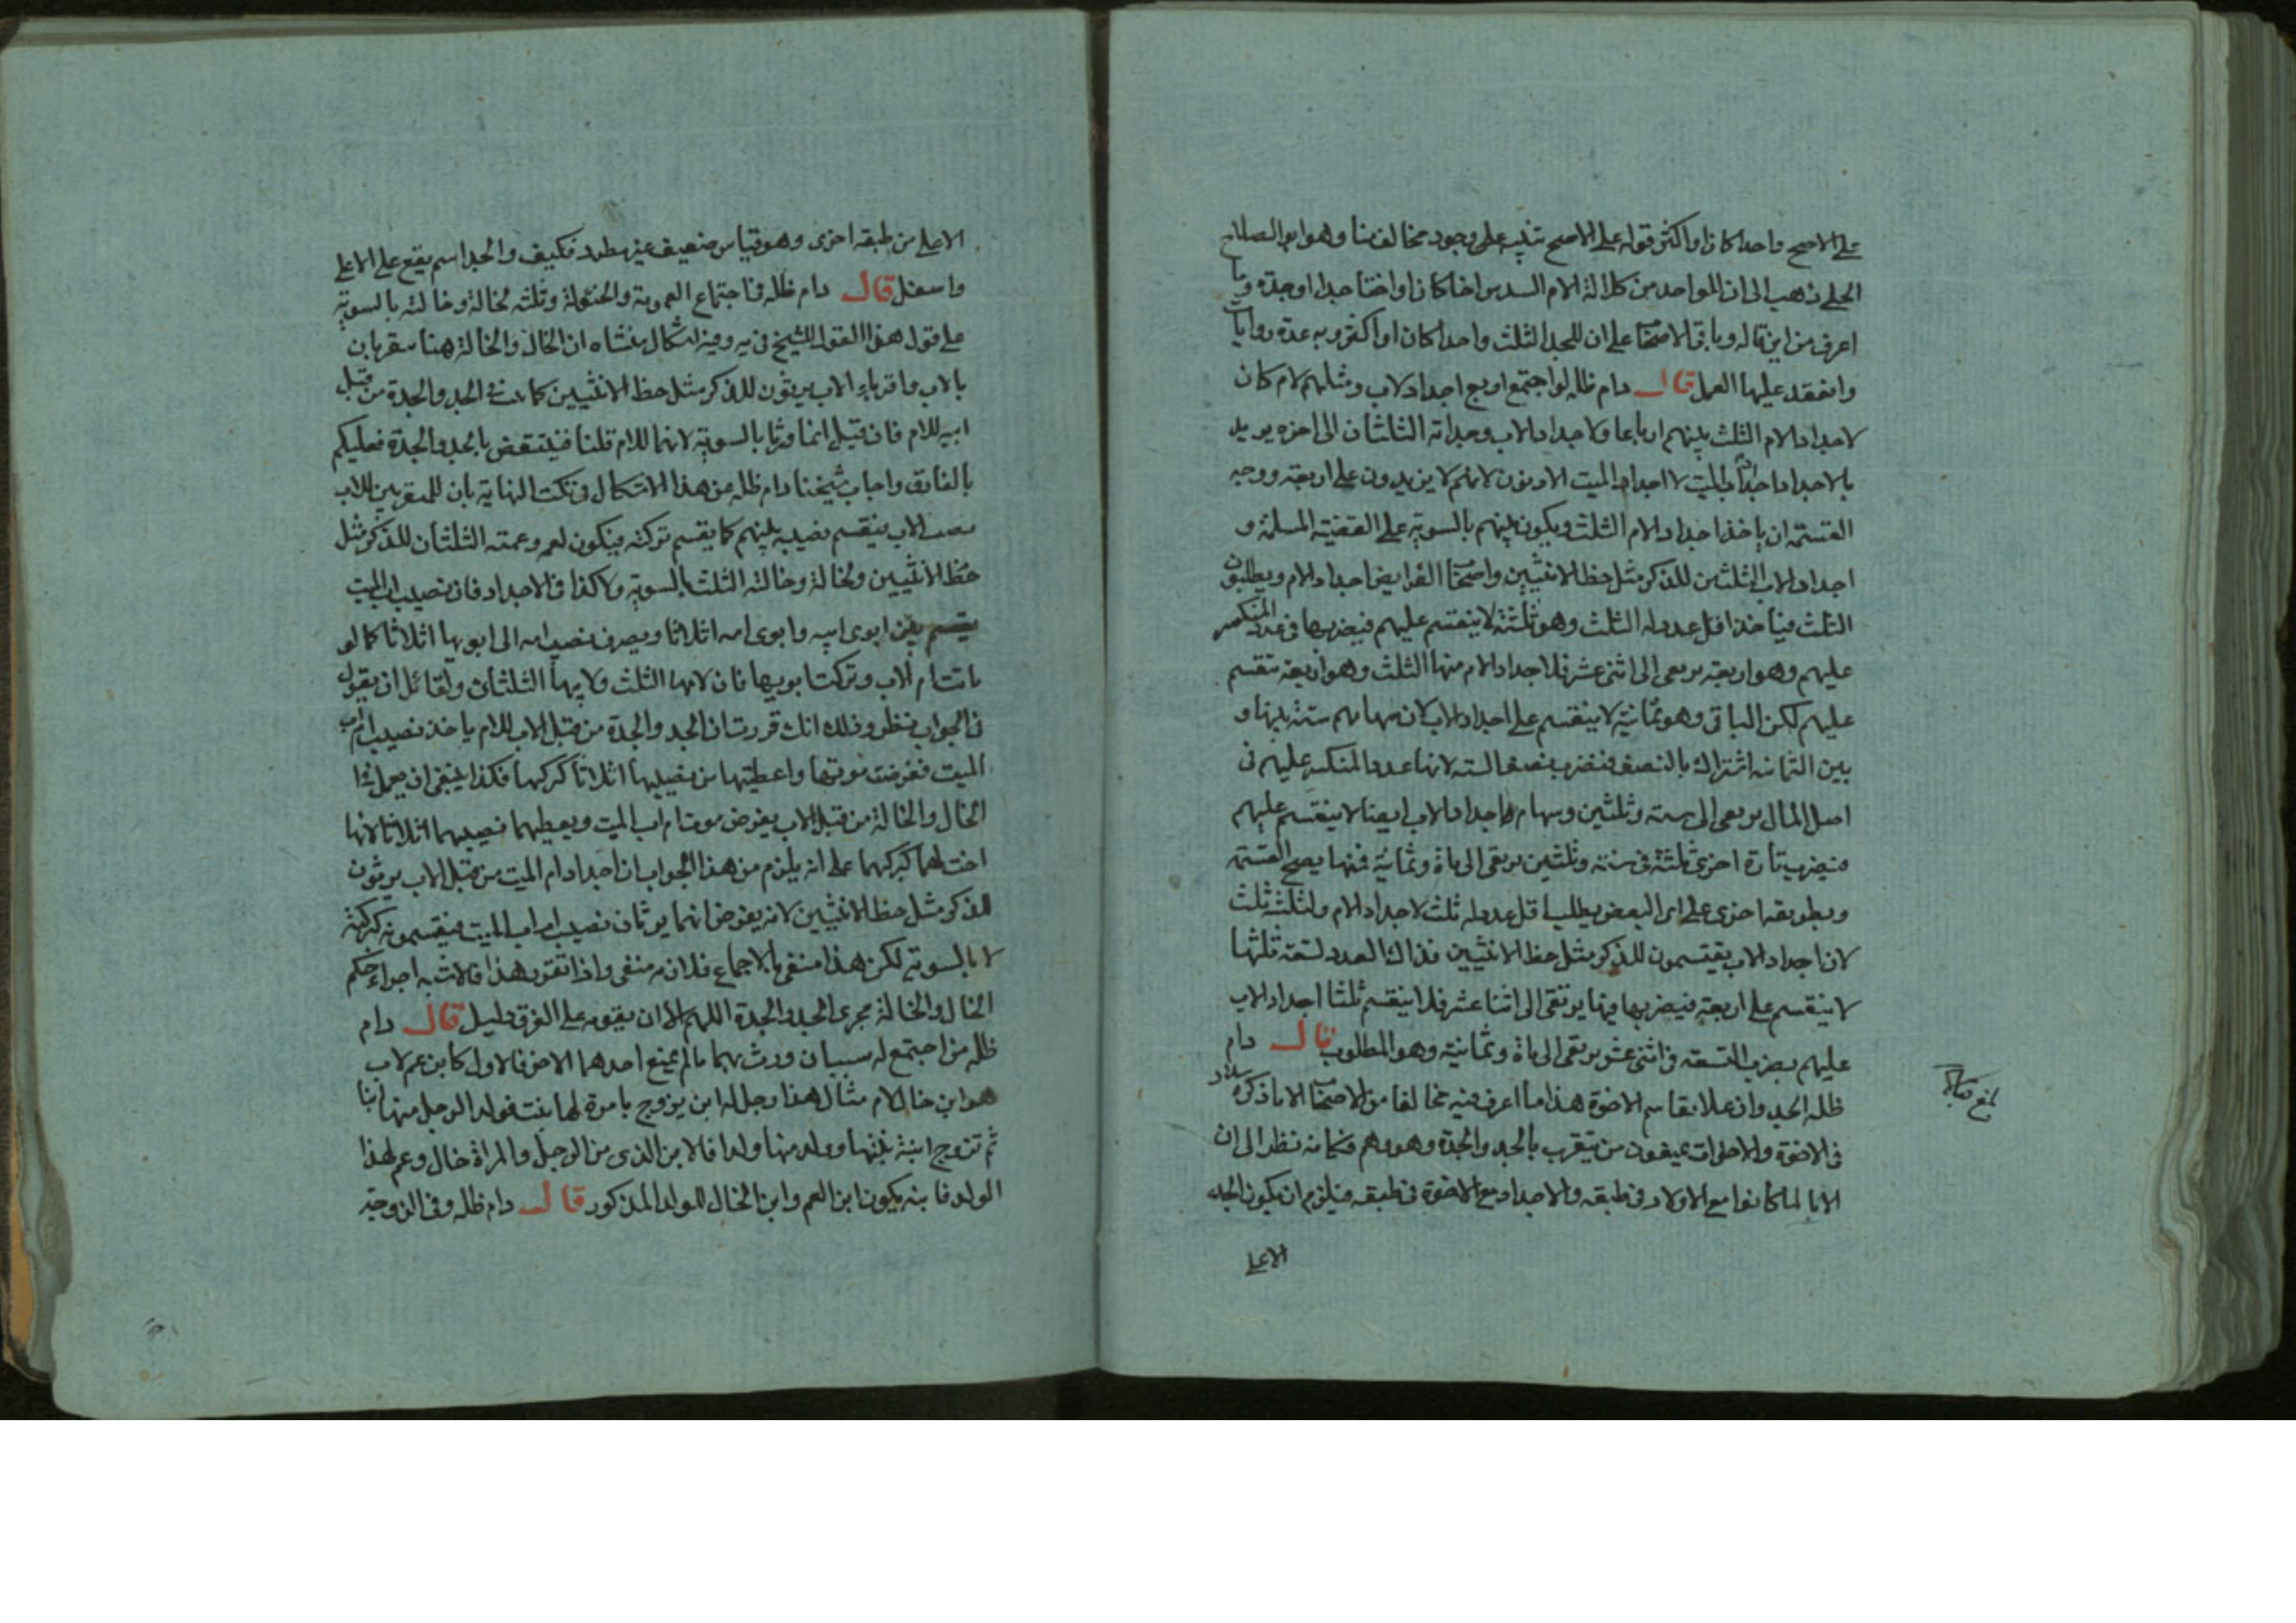 على الاصح واحدا كان او اكثر قوله على الاصح تنبيه على وجود مخالف منا وهو ابو الصلاح
الحلى ذهب الى ان للواحد من كلالة الام السدس اخا كان او اختا جدا او جدة وما
اعرف من اين قاله وباقى الاصحاب على ان للجد الثلث واحدا كان او اكثر وبه عدة روايات
وانعقد عليها العمل قال دام ظله لو اجتمع اربع اجداد لاب ومثلهم لام كان
لاجداد الام الثلث بينهم ارباعا ولاجداد الاب وجداته الثلثان الى اخره يريد
بالاجداد اجداد اب الميت لا اجداد الميت الادنون لانهم لا يزيدون على اربعة ووجه
القسمة ان ياخذ اجداد الام الثلث ويكون بينهم بالسوية على القضية المسلمة و
اجداد الاب الثلثين للذكر مثل حظ الانثيين واصحاب الفرايض اجداد الام ويطلبون
الثلث فياخذ اقل عدد له الثلث وهو ثلثة لا ينقسم عليهم فيضربها فى عدد المنكسر
عليهم وهو اربعة يرتقى الى اثنى عشر فلاجداد الام منها الثلث وهو اربعة تنقسم
عليهم لكن الباقى وهو ثمانية لا ينقسم على اجداد الاب لان سهامهم ستة بينها و
بين الثمانية اشتراك بالنصف فنضرب نصف الستة لانها عدد المنكسر عليهم فى
اصل المال يرتقى الى ستة وثلثين وسهام اجداد الاب ايضا لا ينقسم عليهم
فيضرب تارة اخرى ثلثة فى ستة وثلثين يرتقى الى ماة وثمانية فمنها يصح القسمة
وبطريقة اخرى على راى البعض يطلب اقل عدد له ثلث لاجداد الام ولثلثه ثلث
لان اجداد الاب يقتسمون للذكر مثل حظ الانثيين فذاك العدد تسعة ثلثها
لا ينقسم على اربعة فيضربها فيها يرتقى الى اثنا عشر فلا ينقسم ثلثا اجداد الاب
عليهم يضرب التسعة فى اثنى عشر يرتقى الى ماة وثمانية وهو المطلوب قال دام
ظله الجد وان علا يقاسم الاخوة هذا ما اعرف فيه مخالفا من الاصحاب الا ما ذكره سلار
فى الاخوة والاخوات يمنعون من يتقرب بالجد والجدة وهو وهم فكانه نظر الى ان
الابا لما كانوا مع الاولاد فى طبقة والاجداد مع الاخوة فى طبقة فيلزم ان يكون الجد
الاعلى
بلغ مقابلة
الاعلى من طبقة اخرى وهو قياس ضعيف غير مطرد فكيف والجد اسم يقع على الاعلى
واسفل قال دام ظله فى اجتماع العمومة والخؤلة وثلثه لخاله وخالته بالسوية
على قول هذا القول للشيخ فى يه وفيه اشكال منشاه ان الخال والخالة هنا يتقربان
بالاب واقرباء الاب يرثون للذكر مثل حظ الانثيين كما فى الجد والجدة من قبل
ابيه للام فان قيل انما ورثا بالسوية لانهما للام قلنا فينتقض بالجد والجدة فعليكم
بالفارق واجاب شيخنا دام ظله من هذا الاشكال فى نكت النهاية بان للمتقربين بالاب
نصيب الاب ينقسم نصيبه بينهم كما يقسم تركته فيكون لعمه وعمته الثلثان للذكر مثل
حظ الانثيين ولخاله وخالته الثلث بالسوية وكذا فى الاجداد فان نصيب اب الميت
ينقسم بين ابوى ابيه وابوى امه اثلاثا ويصرف نصيب امه الى ابويها اثلاثا كما لو
ماتت ام الاب وتركت ابويها فان لامها الثلث ولابيها الثلثان ولقائل ان يقول
فى الجواب نظر وذلك انك قررت ان الجد والجدة من قبل الاب للام ياخذ نصيب ام اب
الميت ففرضت موتها واعطيتهما من نصيبها اثلاثا كتركتها فكذا ينبغى ان يعمل فى
الخال والخالة من قبل الاب يفرض موت ام اب الميت ويعطيهما نصيبهما اثلاثا لانها
اخت لهما كتركتها على انه يلزم من هذا الجواب ان اجداد ام الميت من قبل الاب يرثون
للذكر مثل حظ الانثيين لانه يفرض انهما يرثان نصيب ام اب الميت فيقتسمونه كتركته
لا بالسوية لكن هذا منفى بالاجماع فلازمه منفى واذا تقرر هذا فالاشبه اجراء حكم
الخال والخالة مجرى الجد والجدة اللهم الا ان يقوم على الفرق دليل قال دام
ظله من اجتمع له سببان ورث بهما ما لم يمنع احدهما الاخر فالاول كابن عم لاب
هو ابن خال لام مثال هذا رجل له ابن يزوج بامرة لها بنت فولد الرجل منها ابنا
ثم تزوج ابنه بنتها وولد منها ولدا فالابن الذى من الرجل والمراة خال وعم لهذا
الولد فابنه يكون ابن العم وابن الخال للولد المذكور قال دام ظله وفى الزوجة